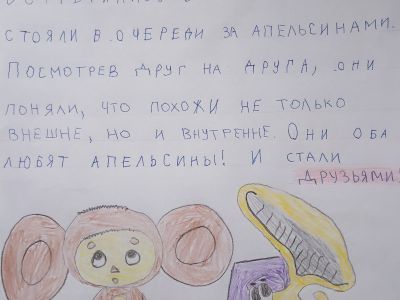 стояли в очереди за апельсинами.
Посмотрев друг на друга, они
поняли, что похожи не только
внешне, но и внутренне. Они оба
любят апельсины! И стали
друзьями